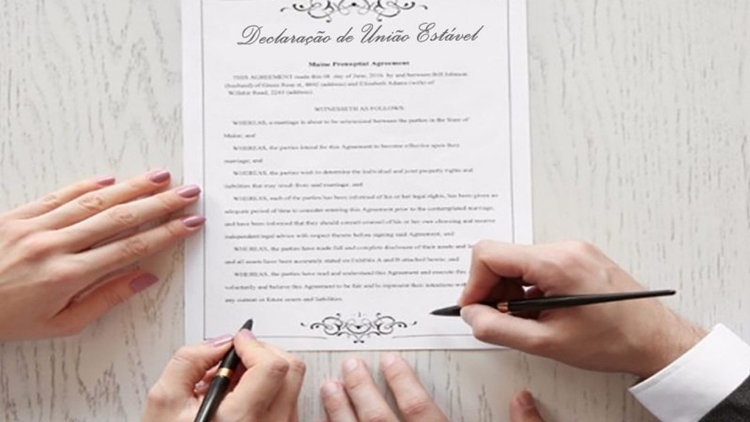 Declaração de União Estável
Maine Prenuptial Agreement
THIS AGREEMENT made this 08 day of June, 2016 by and between Bill Johnson
(husband) of Green Rose st, 4802 (address) and Elizabeth Adams (wife) of
Wilshir Road, 2243 (address).
WITNESSETH AS FOLLOWS:
WHEREAS, a marriage is about to be solemnized between the parties in the State of
Maine; and
WHEREAS, the parties intend for this Agreement to become effective upon their
marriage; and
WHEREAS, the parties wish to determine the individual and joint property rights and
liabilities that may result from said marriage; and
WHEREAS, each of the parties has been informed of his or her legal rights, has been given an
adequate period of time to consider entering this Agreement prior to the contemplated marriage,
and have been informed that they should consult counsel of his or her own choosing and receive
independent legal advice with respect thereto before signing said Agreement; and
WHEREAS, the parties have made full and complete disclosure of their assets and
and all assets have been accurately stated on Exhibits A and B attached hereto; and
WHEREAS, the parties have read and understand this Agreement and execute this
voluntarily and believe this Agreement to be fair and to represent their intentions with
any current or future assets and liabilities.